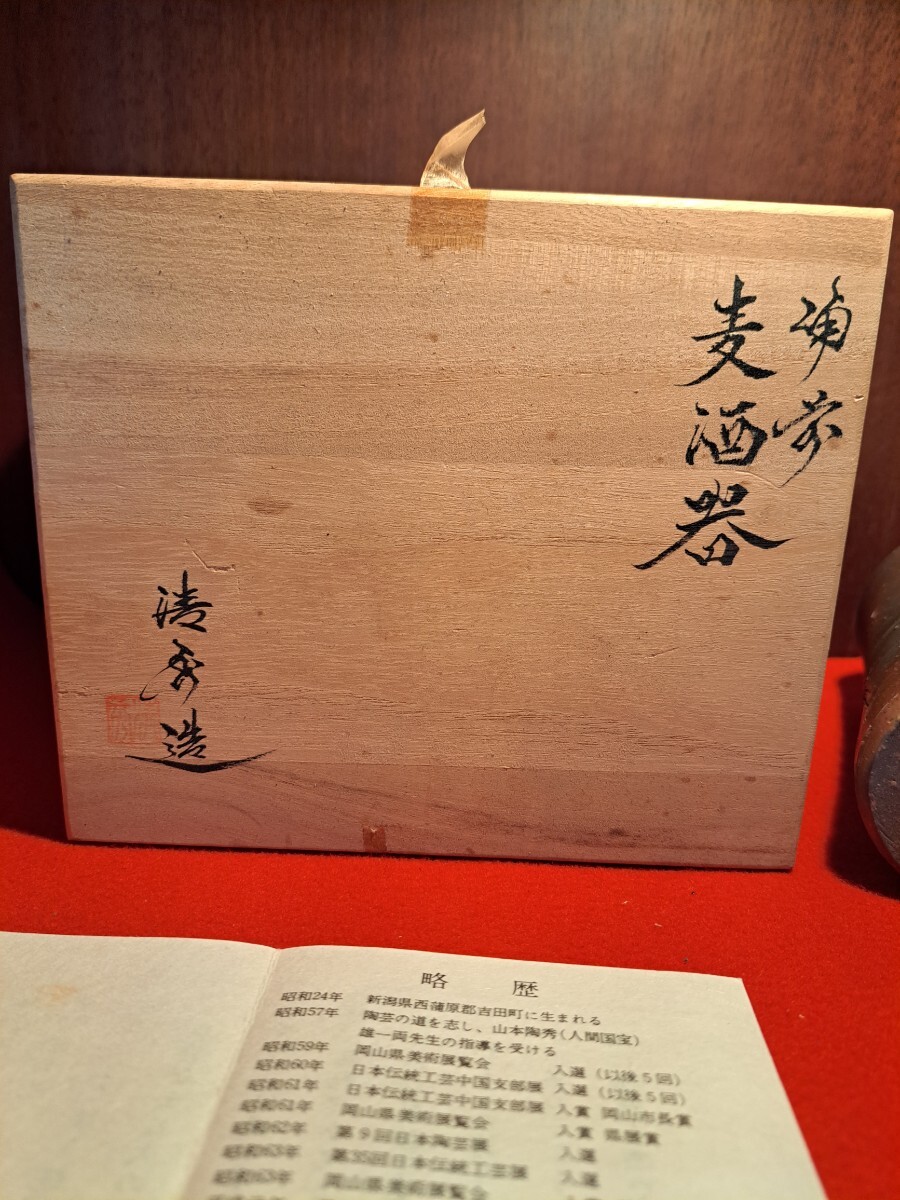 備前
麦酒器
清秀造
略歴
昭和24年 新潟県西蒲原郡吉田町に生まれる
昭和57年 陶芸の道を志し、山本陶秀(人間国宝)
雄一両先生の指導を受ける
昭和59年 岡山県美術展覧会 入選(以後5回)
昭和60年 日本伝統工芸中国支部展 入選(以後5回)
昭和61年 日本伝統工芸中国支部展 入賞 岡山市長賞
昭和61年 岡山県美術展覧会 入賞 県展賞
昭和62年 第9回日本陶芸展 入選
昭和63年 第35回日本伝統工芸展 入選
昭和63年 岡山県美術展覧会